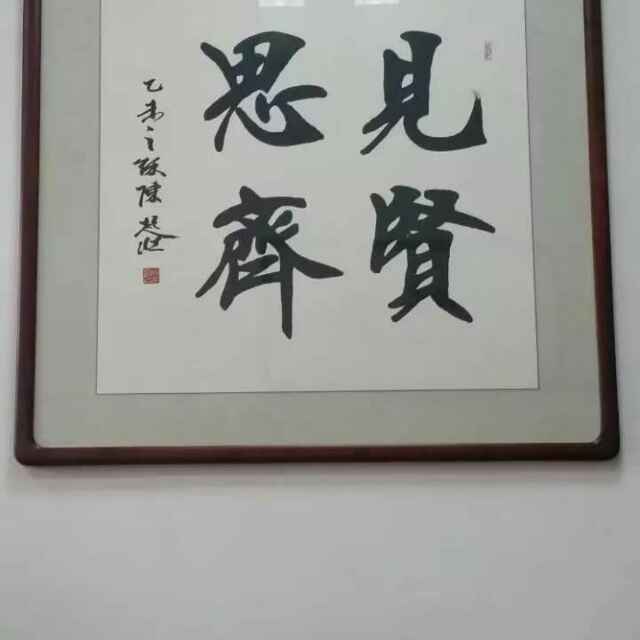 見賢
思齊
乙未之秋陳